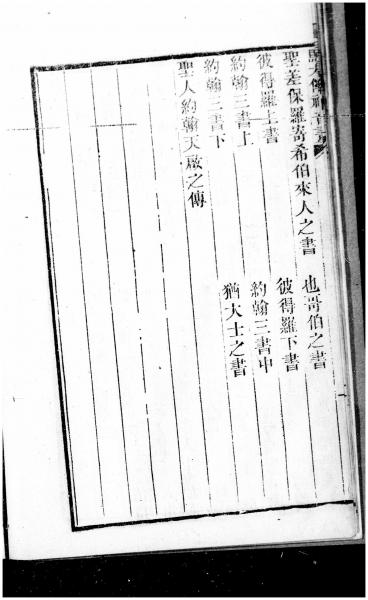 聖差保羅寄希伯來人之書 也哥伯之書
彼得羅上書 彼得羅下書
約翰三書上 約翰三書中
約翰三書下 猶大士之書
聖人約翰天啟之傳